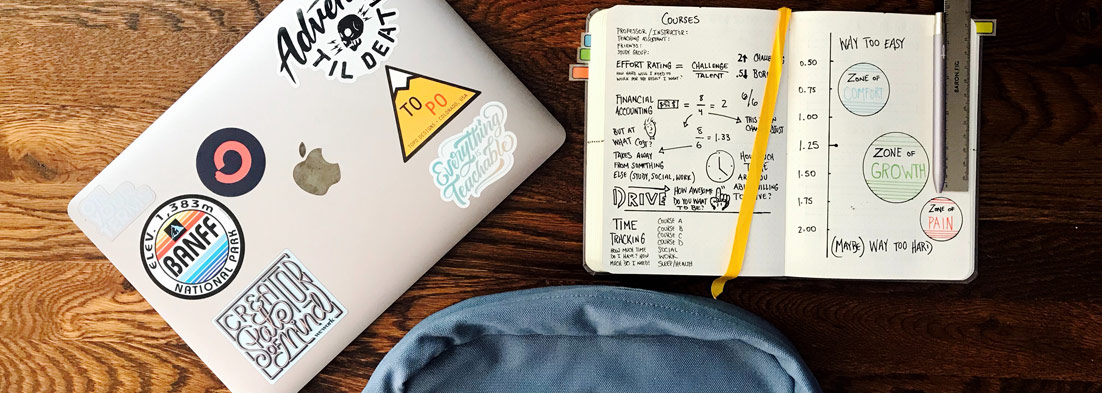 Adven
'TIL DEATH
TO
PO
TOPO DESIGNS - COLORADO, USA
Everything
is
Teachable
ELEV. 1,383m
BANFF
NATIONAL PARK
CREATOR
State
OF Mind
wework
COURSES
PROFESSOR / INSTRUCTOR:
TEACHING ASSISTANT:
FRIENDS:
STUDY GROUP:
EFFORT RATING = CHALLENGE
TALENT
HOW HARD WILL I NEED TO
WORK FOR THE RESULT I WANT?
2↑ CHALLENG
.5↓ BORI
FINANCIAL
ACCOUNTING = 8
4 = 2
6/6
THIS
CHAN
BUT AT
WHAT COST?
8
6 = 1.33
TAKES AWAY
FROM SOMETHING
ELSE (STUDY, SOCIAL, WORK)
HOW MUCH
TIME
ARE YOU
WILLING
TO GIVE?
DRIVE
HOW AWESOME
DO YOU WANT
TO BE?
TIME
TRACKING
HOW MUCH TIME
DO I HAVE? HOW
MUCH DO I NEED?
COURSE A
COURSE B
COURSE C
COURSE D
SOCIAL
WORK
SLEEP/HEALTH
WAY TOO EASY
0.50
0.75
1.00
1.25
1.50
1.75
2.00
ZONE OF
COMFORT
ZONE OF
GROWTH
ZONE OF
PAIN
(MAYBE) WAY TOO HARD
BARON FIG